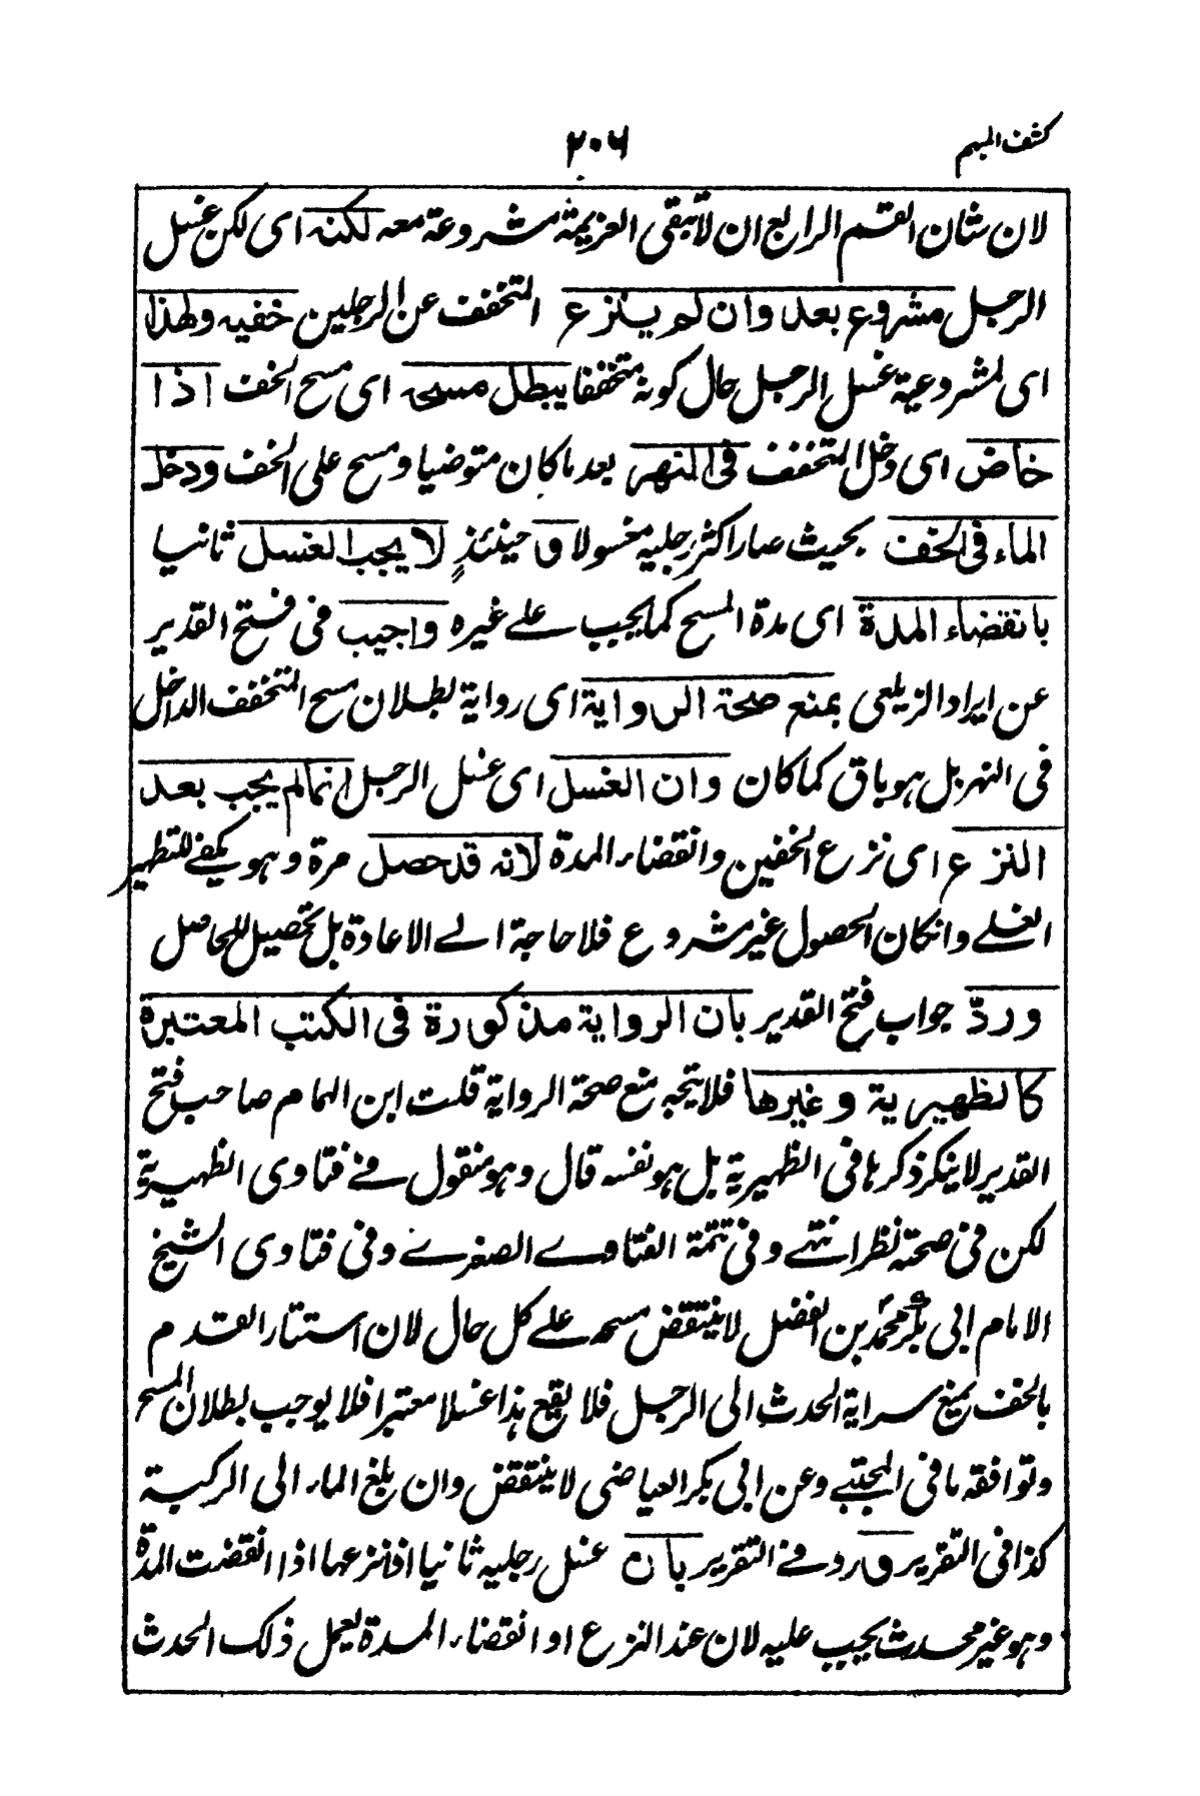 كشف المبهم
٢٠٦
لان شان القسم الرابع ان لا تبقى العزيمة مشروعة معه لكنه اى لكن غسل
الرجل مشروع بعد وان لم ينزع المتخفف عن الرجلين خفيه ولهذا
اى لمشروعية غسل الرجل حال كونه متخففا يبطل مسحه اى مسح الخف اذا
خاض اى دخل المتخفف فى النهر بعد ما كان متوضيا ومسح على الخف ودخل
الماء فى الخف بحيث صار اكثر رجليه مغسولا و حينئذٍ لا يجب الغسل ثانيا
بانقضاء المدة اى مدة المسح كما يجب على غيره واجيب فى فتح القدير
عن ايراد الزيلعى بمنع صحة الرواية اى رواية بطلان مسح المتخفف الداخل
فى النهر بل هو باق كما كان وان الغسل اى غسل الرجل انما لم يجب بعد
النزع اى نزع الخفين وانقضاء المدة لانه قد حصل مرة وهو يكفى للتطهير
الفعلے وانكان الحصول غير مشروع فلا حاجة الے الاعادة بل تحصيل للحاصل
وردّ جواب فتح القدير بان الرواية مذكورة فى الكتب المعتبرة
كالظهيرية وغيرها فلا يتجه منع صحة الرواية قلت ابن الهمام صاحب فتح
القدير لا ينكر ذكرها فى الظهيرية بل هو نفسه قال وهو منقول فے فتاوى الظهيرية
لكن فى صحته نظر انتهے وفى تتمة الفتاوے الصغرے وفى فتاوى الشيخ
الامام ابى بكر محمد بن الفضل لا ينتقض مسحه علے كل حال لان استتار القدم
بالخف يمنع سراية الحدث الى الرجل فلا يقع هذا غسلا معتبرا فلا يوجب بطلان المسح
وتوافقه ما فى المجتبے وعن ابى بكر العياضى لا ينتقض وان بلغ الماء الى الركبة
كذا فى التقرير و رد فے التقرير بان غسل رجليه ثانيا اذا نزعهما اذا انقضت المدة
وهو غير محدث يجب عليه لان عند النزع او انقضاء المدة يعمل ذلك الحدث